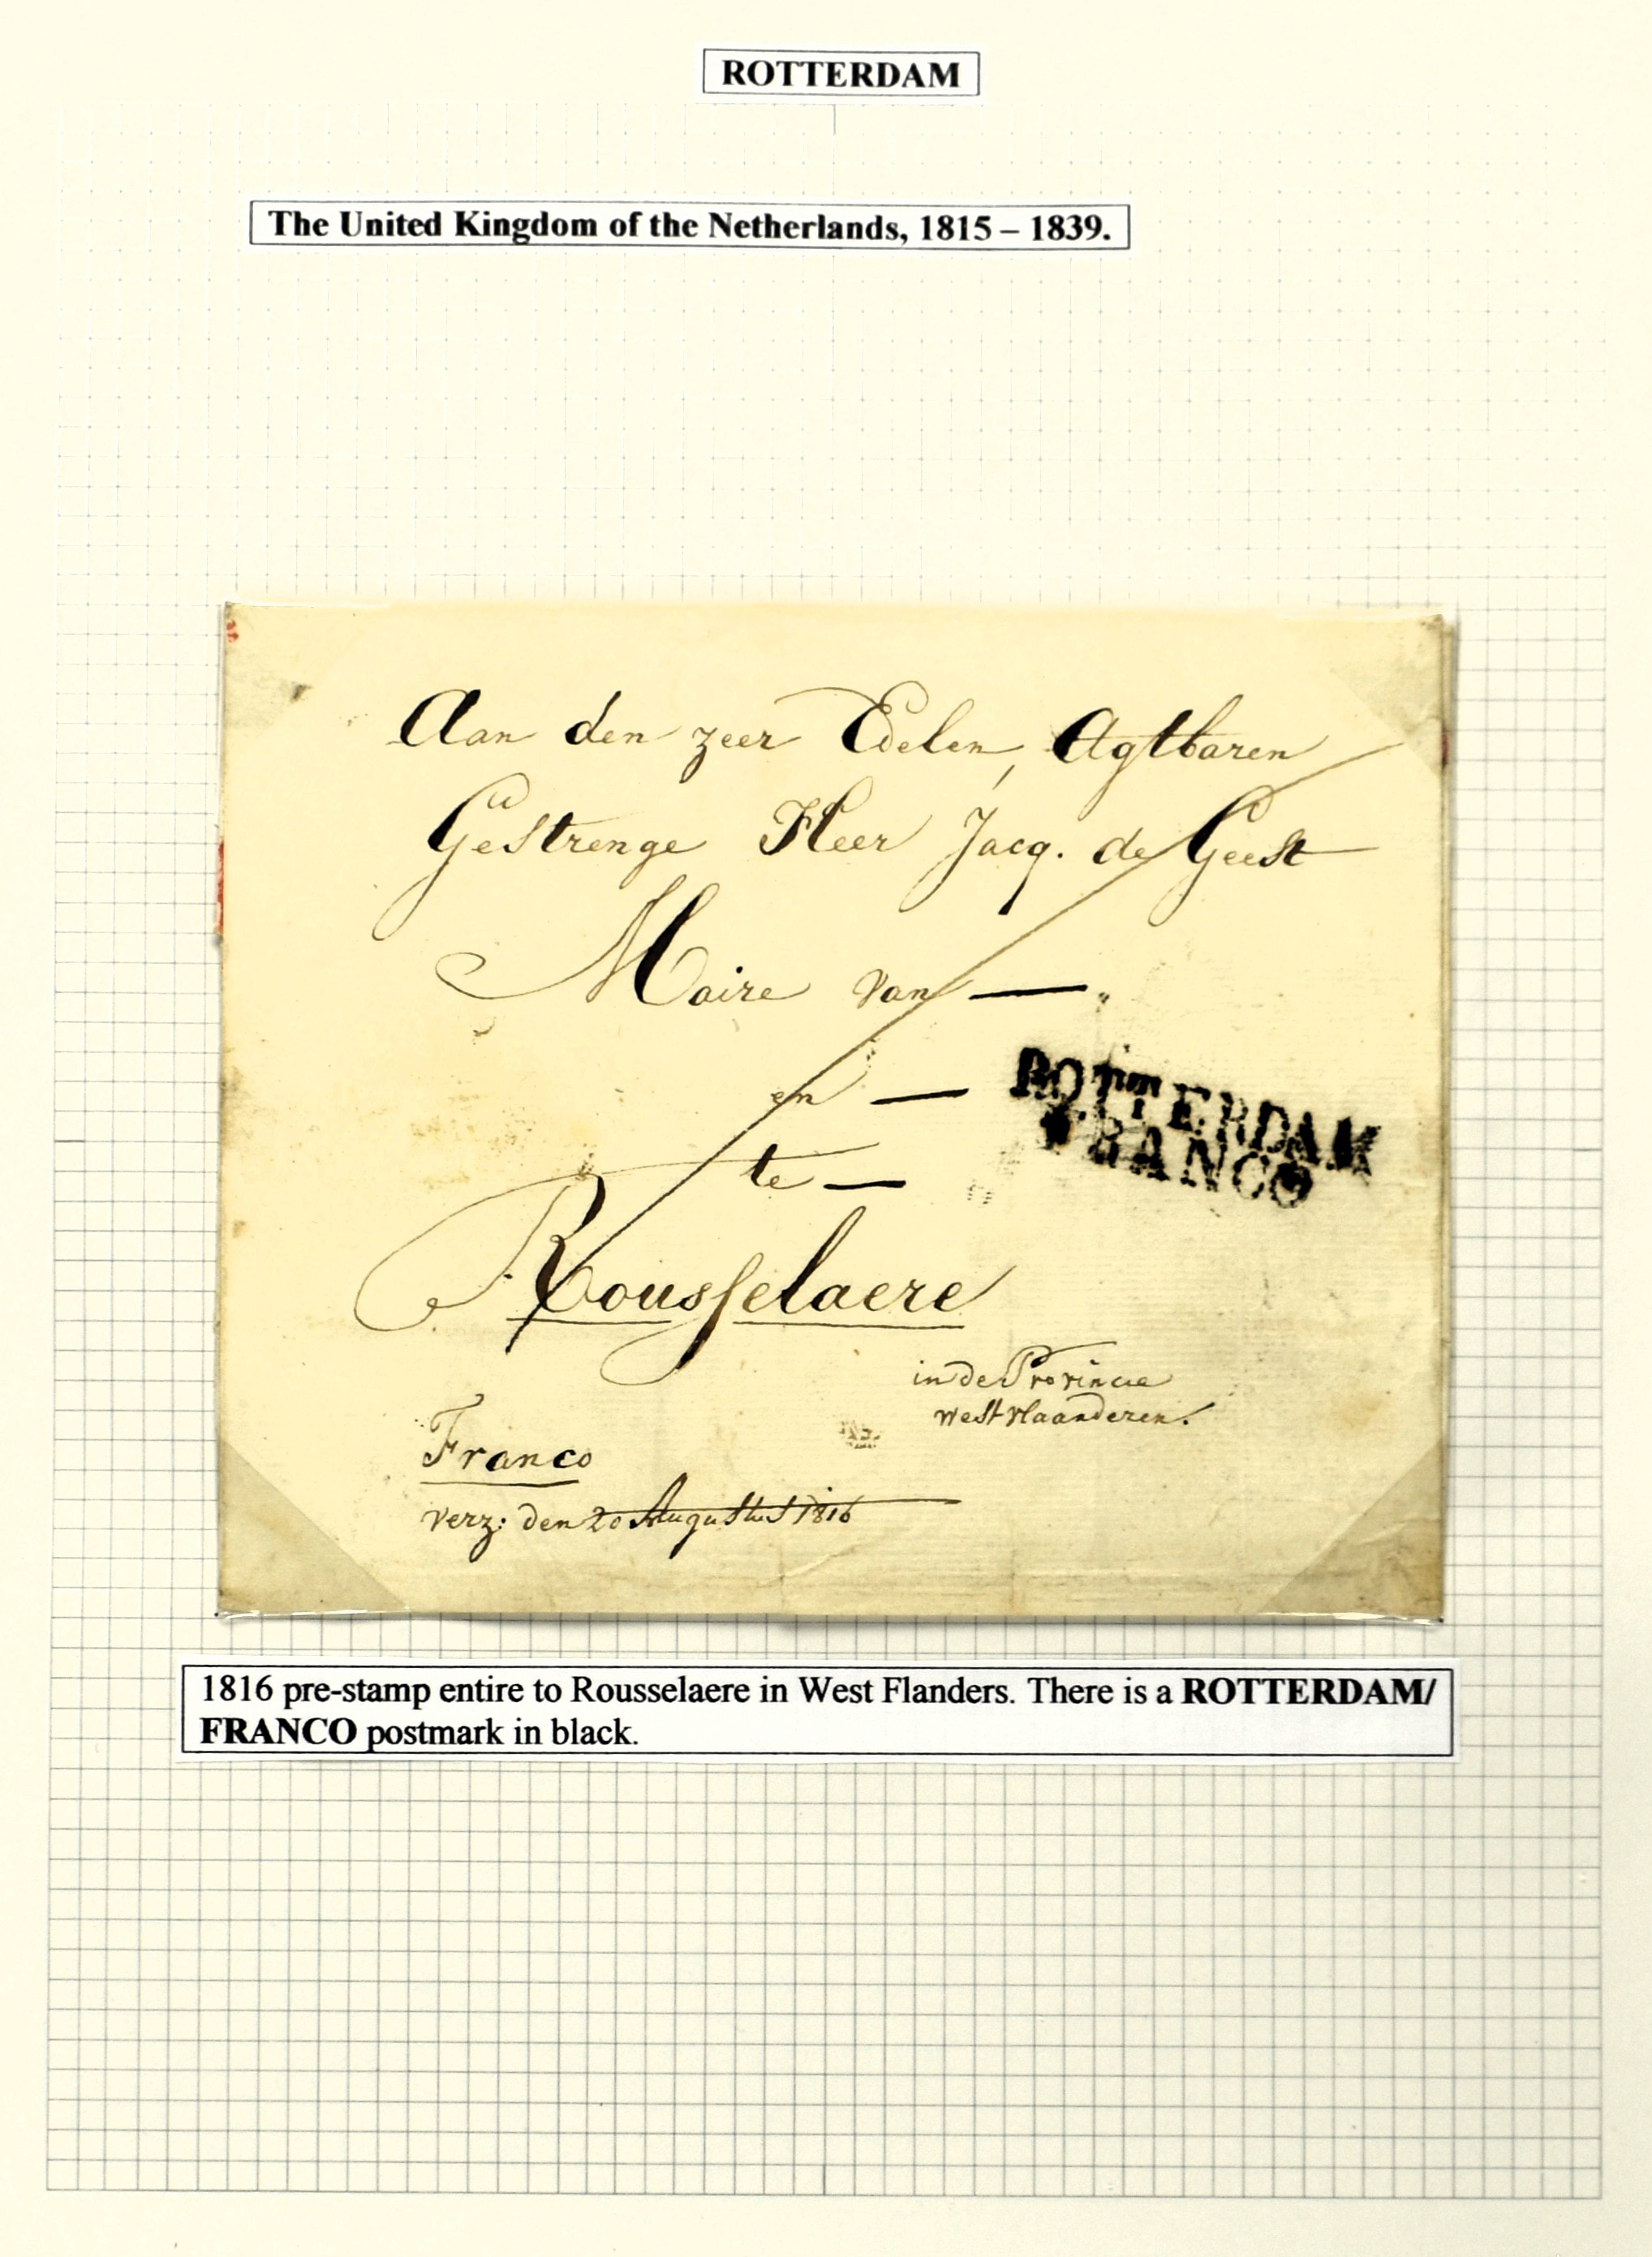 ROTTERDAM
The United Kingdom of the Netherlands, 1815 – 1839.
Aan den zeer Edelen, Agtbaren
Gestrenge Heer Jacq. de Geest
Maire van —
en —
te —
ROTTERDAM
FRANCO
Rousselaere
in de Provincie
westvlaanderen.
Franco
verz: den 20 Augustus 1816
1816 pre-stamp entire to Rousselaere in West Flanders. There is a ROTTERDAM/
FRANCO postmark in black.